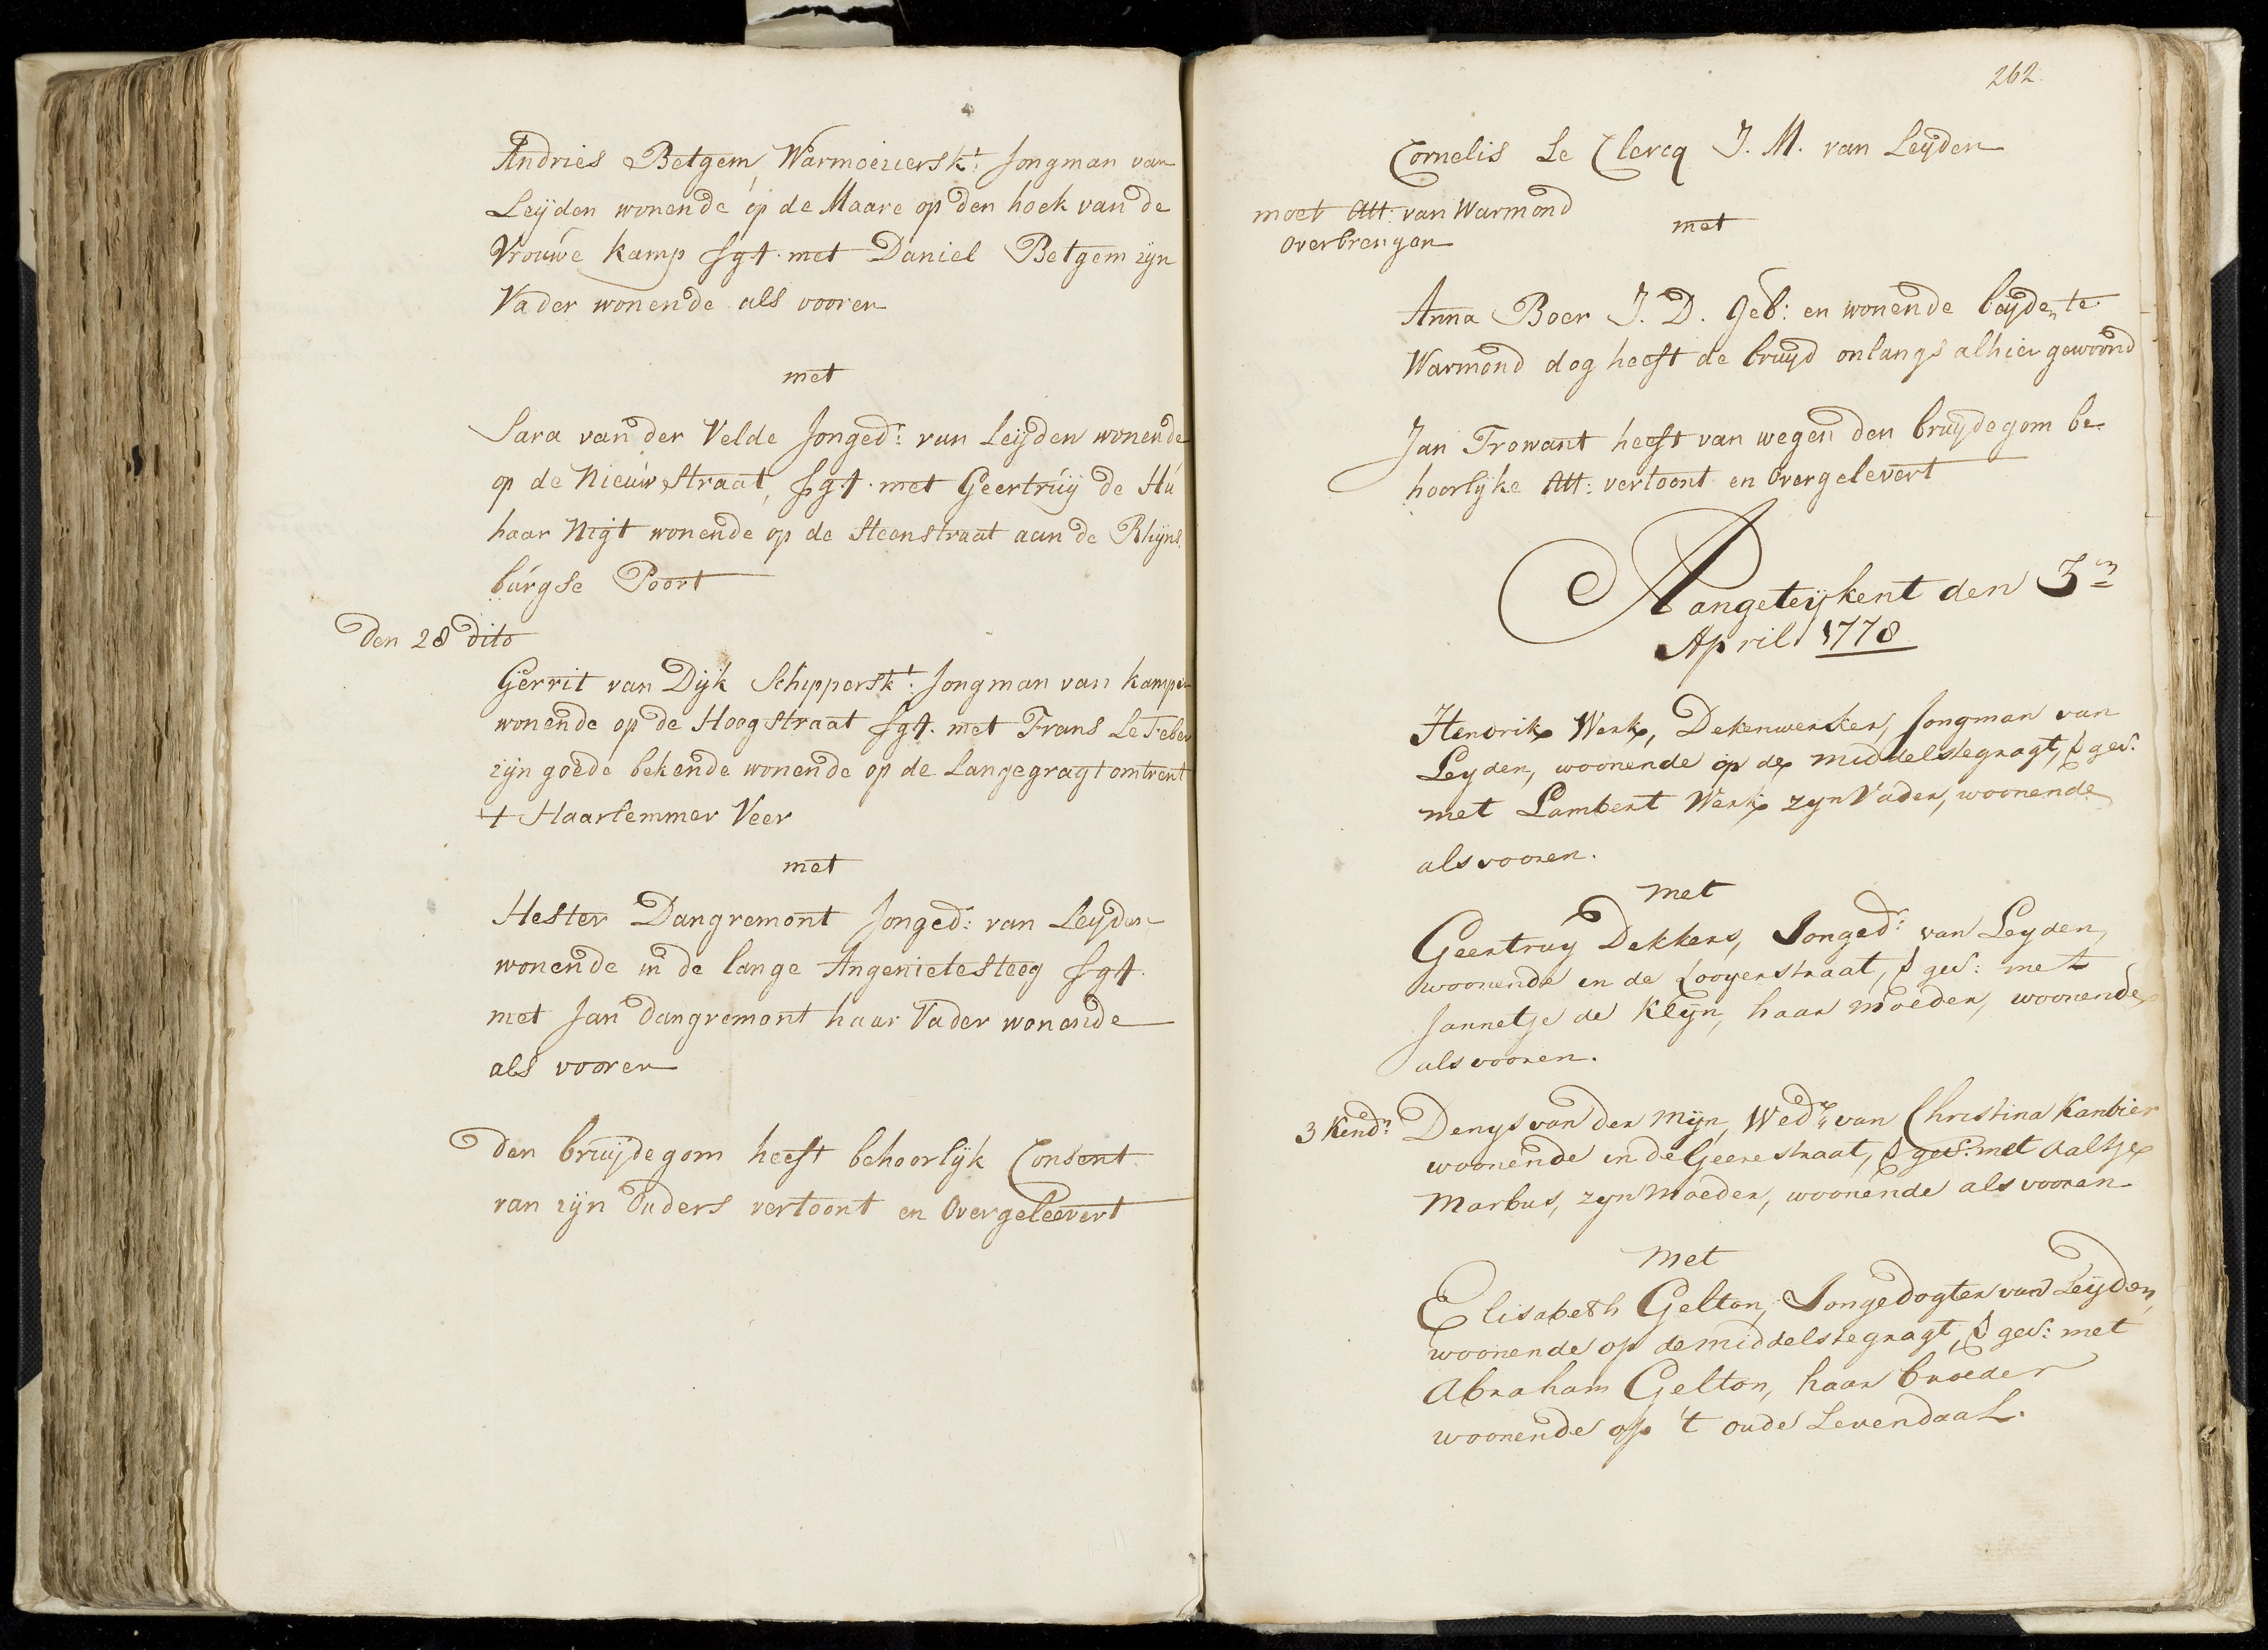 Andries Betgem, Warmoezierskt: Jongman van
Leijden wonende op de Maare op den hoek van de
Vrouwe kamp sgt. met Daniel Betgem zijn
Vader wonende als vooren
met
Sara van der Velde Jonged: van Leijden wonende
op de Nieuwstraat, sgt. met Geertruij de Hu
haar Nigt wonende op de Steenstraat aan de Rhijns
burgse Poort
Den 28 dito
Gerrit van Dijk Schipperskt: Jongman van kampen
wonende op de Hoogstraat sgt. met Frans Le Feber
zijn goede bekende wonende op de Langegragt omtrent
't Haarlemmer Veer
met
Hester Dangremont Jonged: van Leijden
wonende in de lange Angenietesteeg sgt.
met Jan dangremont haar Vader wonende
als vooren
den bruijdegom heeft behoorlijk Consent
van zijn Ouders vertoont en Overgeleevert
262
Cornelis Le Clercq J. M. van Leijden
moet Att: van Warmond
overbrengen
met
Anna Boer J. D. Geb: en wonende beijden te
Warmond dog heeft de bruijd onlangs alhier gewoond
Jan Trowant heeft van wegen den bruijdegom be
hoorlijke Att: vertoont en Overgelevert
Aangeteijkent den 3en
April 1778
Hendrik Werk, Dekenwerker, Jongman van
Leyden, woonende op de middelstegragt, geds:
met Lambert Werk zyn Vader, woonende
als vooren.
met
Geertruy Dekkers, Jonged: van Leyden,
woonende in de Looyerstraat, geds: met
Jannetje de Klijn, haar moeder, woonende
als vooren.
3 Kendn: Denys van der Mijn, Wedr. van Christina Kanbier
woonende in de Geerestraat, geds: met Aaltje
Markus, zyn Moeder, woonende als vooren
met
Elisabeth Gelton, Jongedogter van Leijden,
woonende op de middelstegragt, geds: met
Abraham Gelton, haar broeder
woonende op 't oude Levendaal.